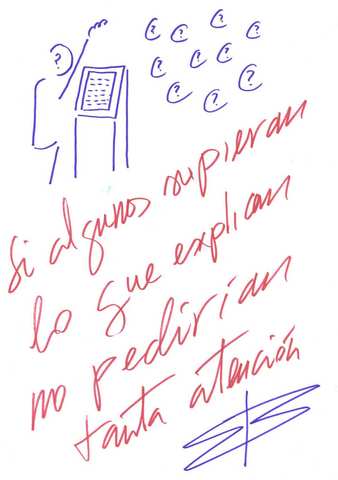 ?
? ? ? ?
? ? ? ?
? ?
si algunos supieran
lo que explican
no pedirían
tanta atención